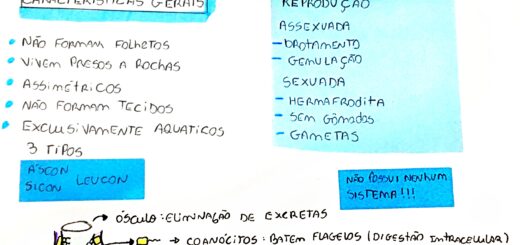 CARACTERÍSTICAS GERAIS
• NÃO FORMAM FOLHETOS
• VIVEM PRESOS A ROCHAS
• ASSIMÉTRICOS
• NÃO FORMAM TECIDOS
• EXCLUSIVAMENTE AQUATICOS
3 TIPOS
ÁSCON
SICON LEUCON
REPRODUÇÃO
ASSEXUADA
- BROTAMENTO
- GEMULAÇÃO
SEXUADA
- HERMAFRODITA
- SEM GÔNADAS
- GAMETAS
NÃO POSSUI NENHUM
SISTEMA!!!
→ ÓSCULO: ELIMINAÇÃO DE EXCRETAS
→ COANÓCITOS: BATEM FLAGELOS (DIGESTÃO INTRACELULAR)